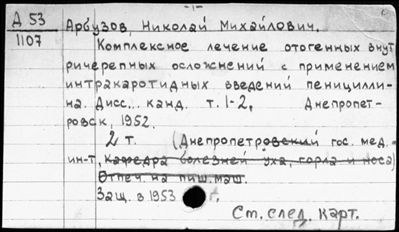 -1-
Д 53 Арбузов, Николай Михайлович.
1107
Комплексное лечение отогенных внут
ричерепных осложнений с применением
интракаротидных введений пеницилли-
на. Дисс. канд. т. 1-2. Днепропет-
ровск, 1952.
2 т. (Днепропетровский гос. мед.
ин-т, кафедра болезней уха, горла и носа)
Отпеч. на пиш. маш.
Защ. в 1953 г.
См. след. карт.